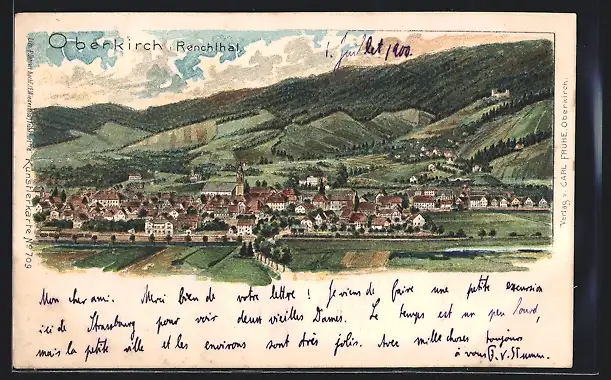 Oberkirch i. Renchthal.
1. Juillet 1900.
Künstlerkarte No 709
Verlag v. CARL FRÜHE, Oberkirch.
Mon cher ami. Merci bien de votre lettre ! Je viens de faire une petite excursion
ici de Strassburg pour voir deux vieilles Dames. Le temps est un peu lourd,
mais la petite ville et les environs sont très jolis. Avec mille choses toujours
à vous